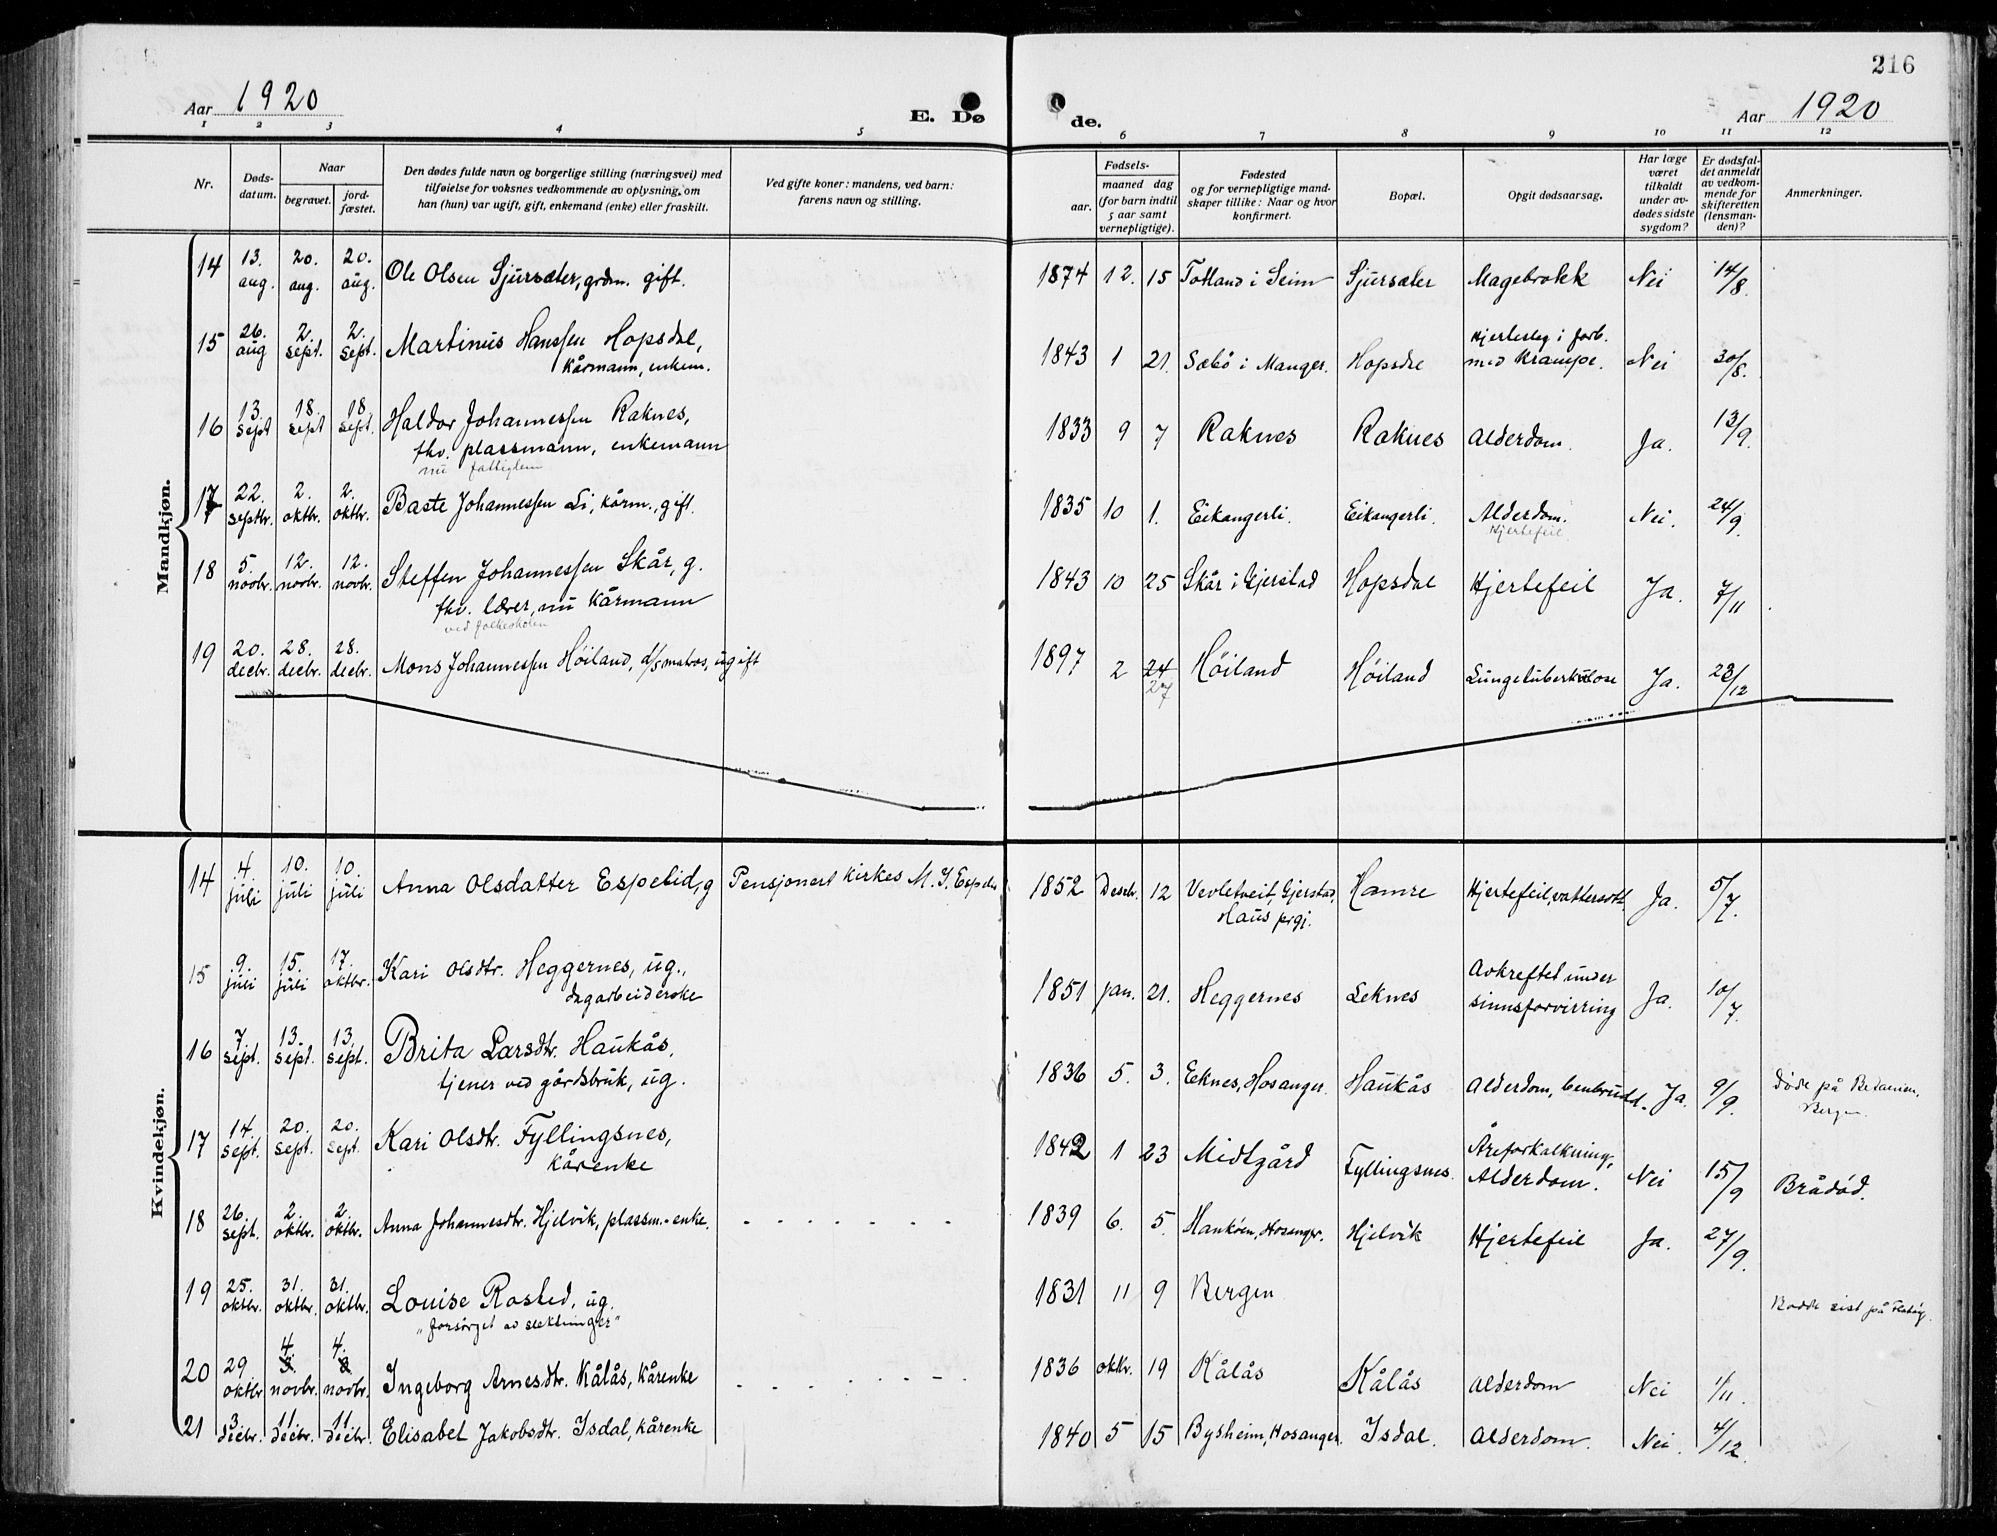 216
Aar 1920
E. Dø
de.
Aar 1920
1 2 3 4 5 6 7 8 9 10 11 12
Nr.
Døds-
datum.
Naar
begravet.
jord-
fæstet.
Den dødes fulde navn og borgerlige stilling (næringsvei) med
tilføielse for voksnes vedkommende av oplysning om
han (hun) var ugift, gift, enkemand (enke) eller fraskilt.
Ved gifte koner: mandens, ved barn:
farens navn og stilling.
Fødsels-
aar.
maaned dag
(for barn indtil
5 aar samt
vernepligtige).
Fødested
og for vernepligtige mand-
skaper tillike: Naar og hvor
konfirmert.
Bopæl.
Opgit dødsaarsag.
Har læge
været
tilkaldt
under av-
dødes sidste
sygdom?
Er dødsfal-
det anmeldt
av vedkom-
mende for
skifteretten
(lensman-
den)?
Anmerkninger.
Mandkjøn.
14 13. aug. 20. aug. 20. aug. Ole Olsen Sjursæter, grdm. gift. 1874 12. 15 Totland i Seim Sjursæter Magebrokk Nei 14/8.
15 26. aug 2. sept. 2. sept. Martinus Hanssen Hopsdal,
kårmann, enkem. 1843 1 21. Sæbö i Manger. Hopsdal Hjerteslag i forb.
med krampe. Nei 30/8.
16 13. sept 18. sept 18. sept. Haldor Johannessen Raknes,
fhv. plassmann, enkemann
nu fattiglem 1833 9 7 Raknes Raknes Alderdom. Ja. 13/9.
17 22. septbr. 2. oktbr. 2. oktbr. Baste Johannessen Li, kårm., gift. 1835 10 1. Eikangerli. Eikangerli. Alderdom.
Hjertefeil Nei. 24/9.
18 5. novbr. 12. novbr. 12. novbr. Steffen Johannessen Skår, g.
fhv. lærer, nu kårmann
ved folkeskolen 1843 10 25 Skår i Gjerstad Hopsdal Hjertefeil Ja. 7/11.
19 20. decbr. 28. decbr. 28. decbr. Mons Johannessen Höiland, d/s matros, ugift 1897 2 24
27 Höiland Höiland Lungetuberkulose Ja. 23/12
Kvindekjøn.
14 4. juli 10. juli 10. juli Anna Olsdatter Espelid, g Pensjonert kirkes. M. J. Espelid 1852 Desebr. 12 Vevletveit, Gjerstad,
Haus prgj. Hamre Hjertefeil, vattersott. Ja. 5/7.
15 9. juli 15. juli 17. oktbr. Kari Olsdtr. Heggernes, ug.,
dagarbeiderske 1851 jan. 21. Heggernes Leknes Avkreftet under
sinnsforvirring Ja. 10/7.
16 7 sept. 13. sept. 13. sept. Brita Larsdtr. Haukås,
tjener ved gårdsbruk, ug. 1836 5. 3. Eknes, Hosanger. Haukås Alderdom, benbrudd. Ja. 9/9. Döde på Betanien,
Bergen.
17 14. sept. 20. sept. 20. sept. Kari Olsdtr. Fyllingsnes,
kårenke 1842 1 23 Midtgård Fyllingsnes. Åreforkalkning,
Alderdom. Nei 15/9 Brådöd.
18 26. sept. 2. oktbr. 2. oktbr. Anna Johannesdtr. Hjelvik, plassm.-enke. 1839 6. 5. Hosanger. Hjelvik Hjertefeil Ja. 27/9.
19 25. oktbr. 31. oktbr. 31. oktbr. Louise Rosted, ug.
"forsörget av slektninger" 1831 11 9 Bergen Bodde sist på
20 29 oktbr 3. 4. novbr. 3 4. novbr. Ingeborg Arnesdtr. Kålås, kårenke 1836 oktbr. 19 Kålås Kålås Alderdom Nei 1/11.
21 3 decbr. 11. decbr. 11. decbr. Elisabet Jakobsdtr. Isdal, kårenke 1840 5 15 Bysheim, Hosanger. Isdal. Alderdom. Nei. 4/12.